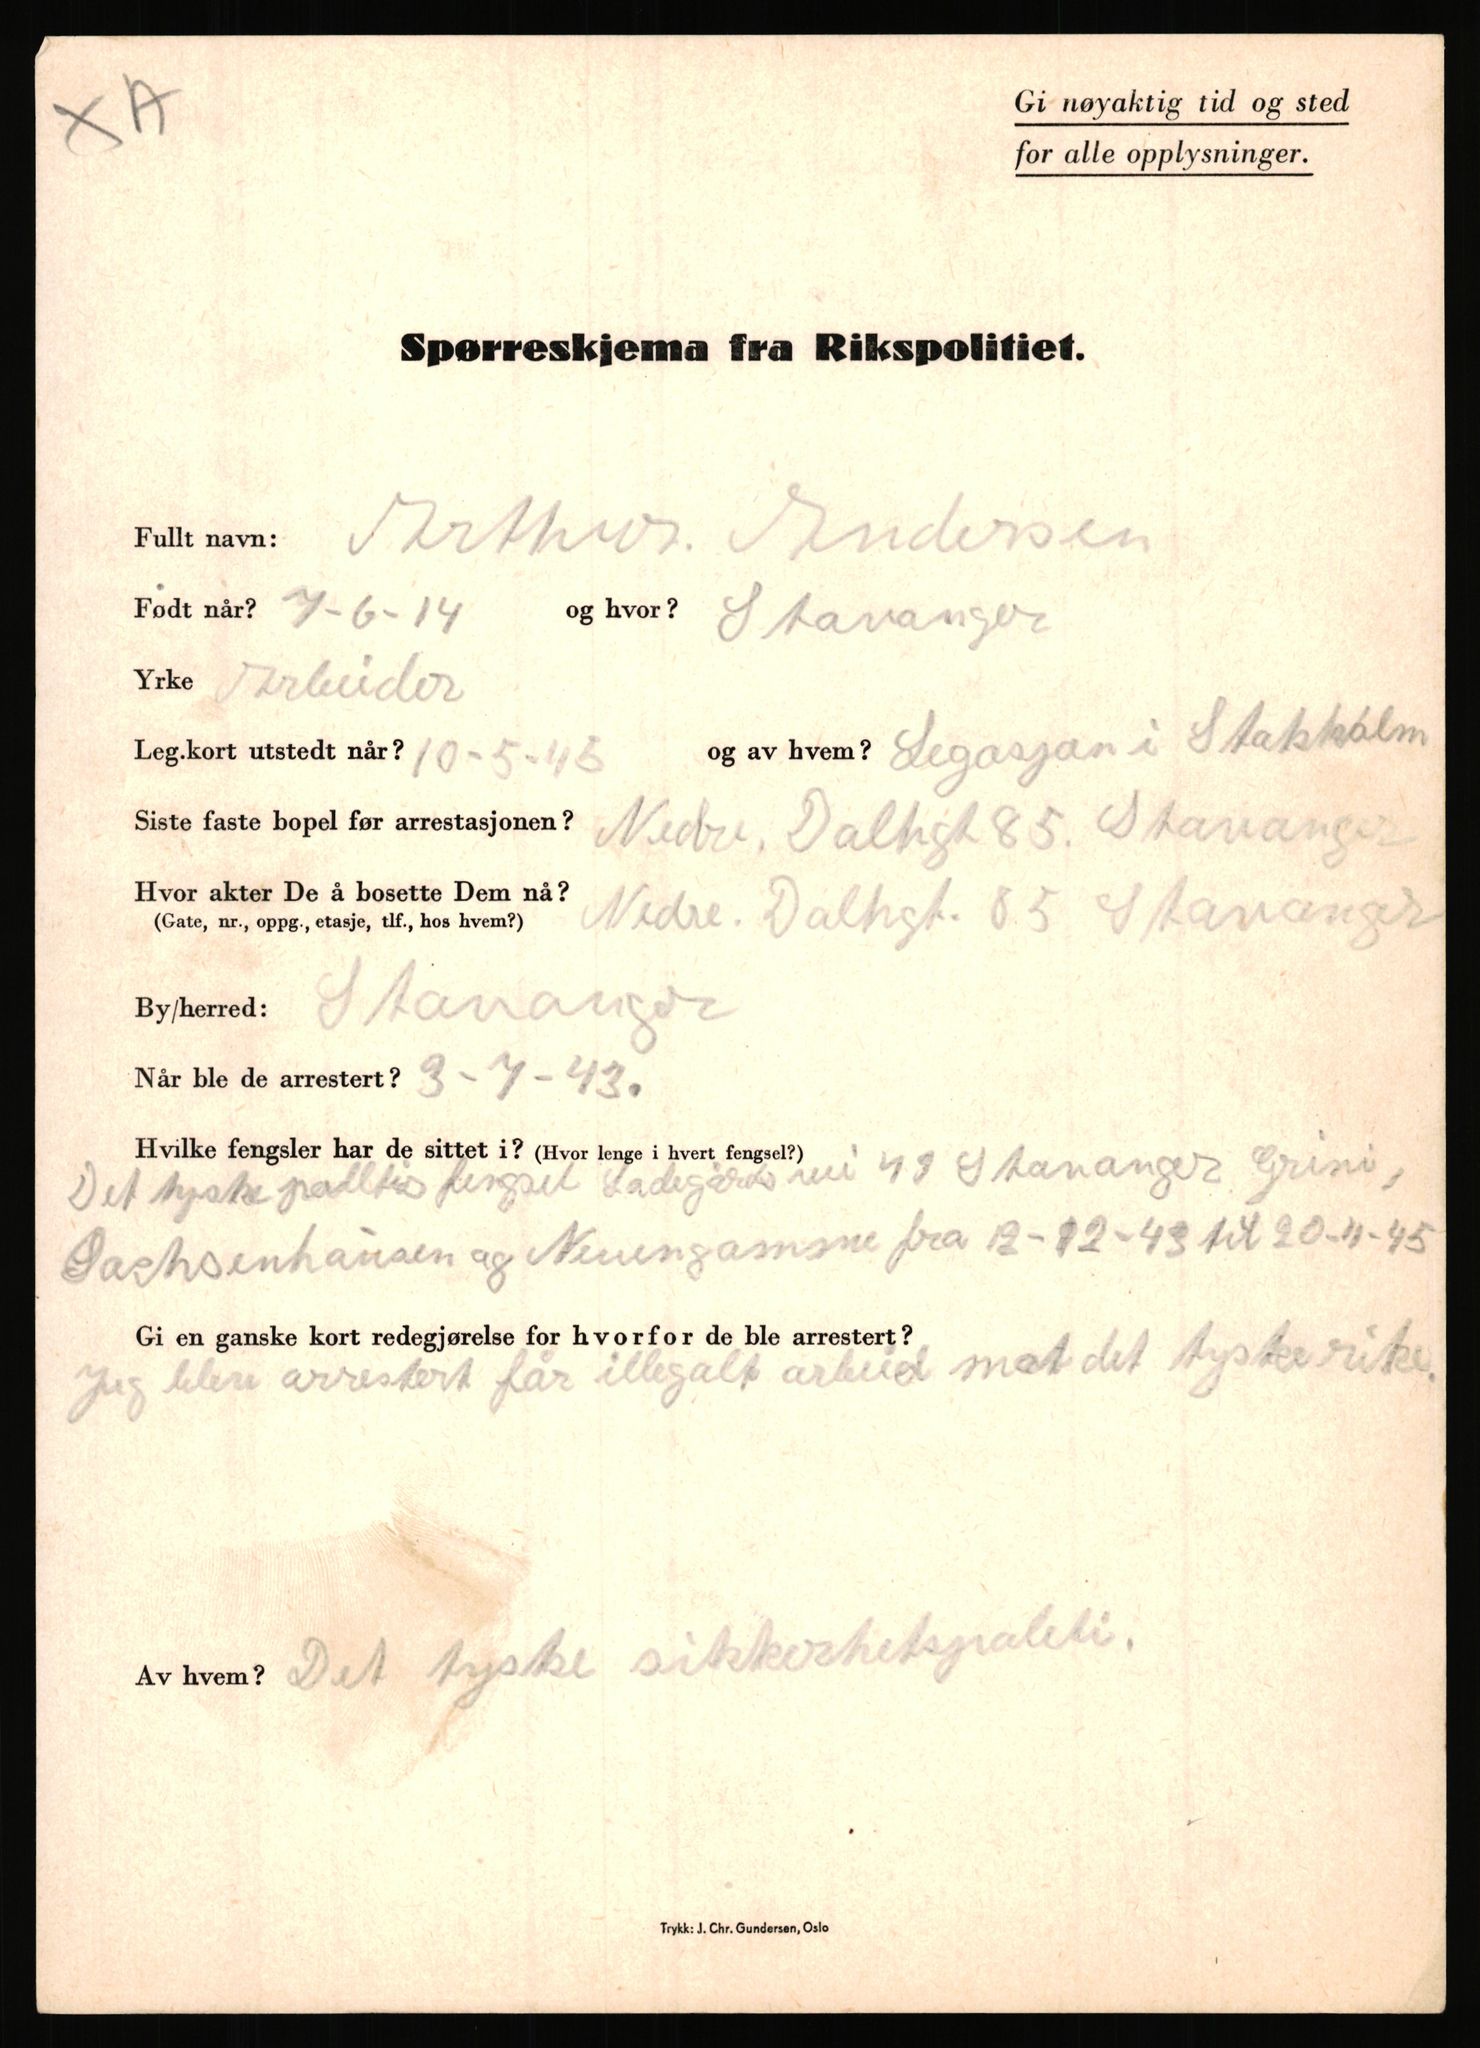 XA
Gi nøyaktig tid og sted
for alle opplysninger.
Spørreskjema fra Rikspolitiet.
Fullt navn: Arthur. Andersen
Født når? 7-6-14 og hvor? Stavanger
Yrke Arbeider
Leg.kort utstedt når? 10-5-45 og av hvem? Legasjon i Stokkolm
Siste faste bopel før arrestasjonen? Nedre. Dalhgt 85. Stavanger
Hvor akter De å bosette Dem nå? Nedre. Dalhgt. 85 Stavanger
(Gate, nr., oppg., etasje, tlf., hos hvem?)
By/herred: Stavanger
Når ble de arrestert? 3-7-43.
Hvilke fengsler har de sittet i? (Hvor lenge i hvert fengsel?)
Det tyske fengsel Ladegårds vei 43 Stavanger Grini,
Sachsenhausen og Neuengamme fra 12-12-43 til 20-4-45
Gi en ganske kort redegjørelse for hvorfor de ble arrestert?
Jeg blev arrestert får illegalt arbeid mot det tyske rike.
Av hvem? Det tyske sikkerhetspoliti.
Trykk: J. Chr. Gundersen, Oslo